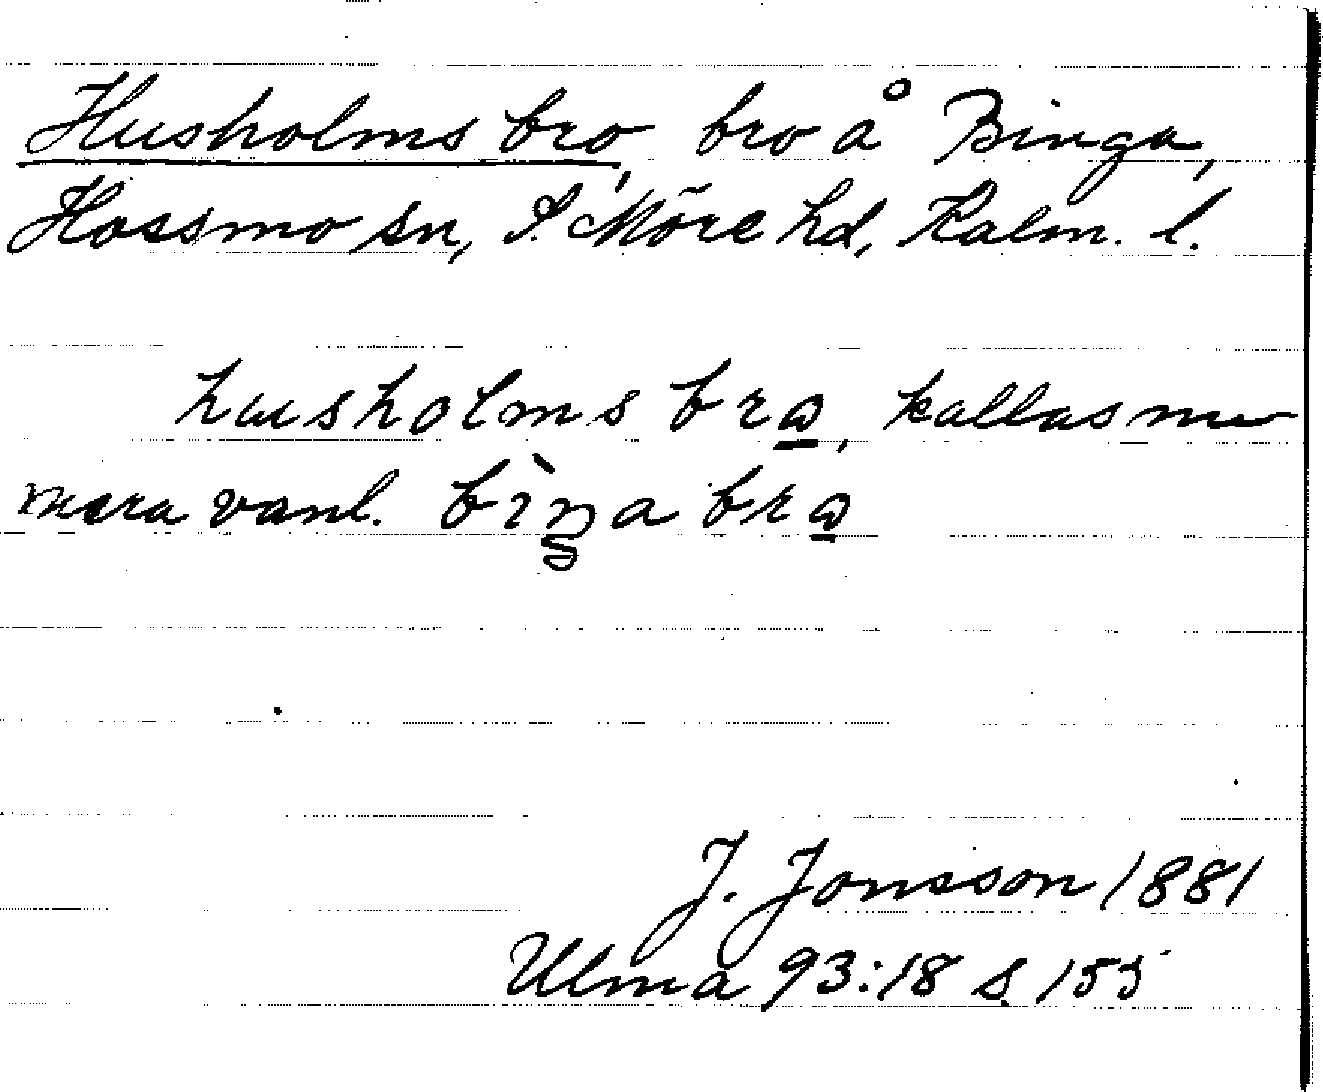 Husholms bro, bro å Binga,
Hossmo sn, S. Möre hd, Kalm. l.
husholms bro, kallas nu
mera vanl. bìŋa bro
J. Jonsson 1881
Ulma 93:18 s. 155